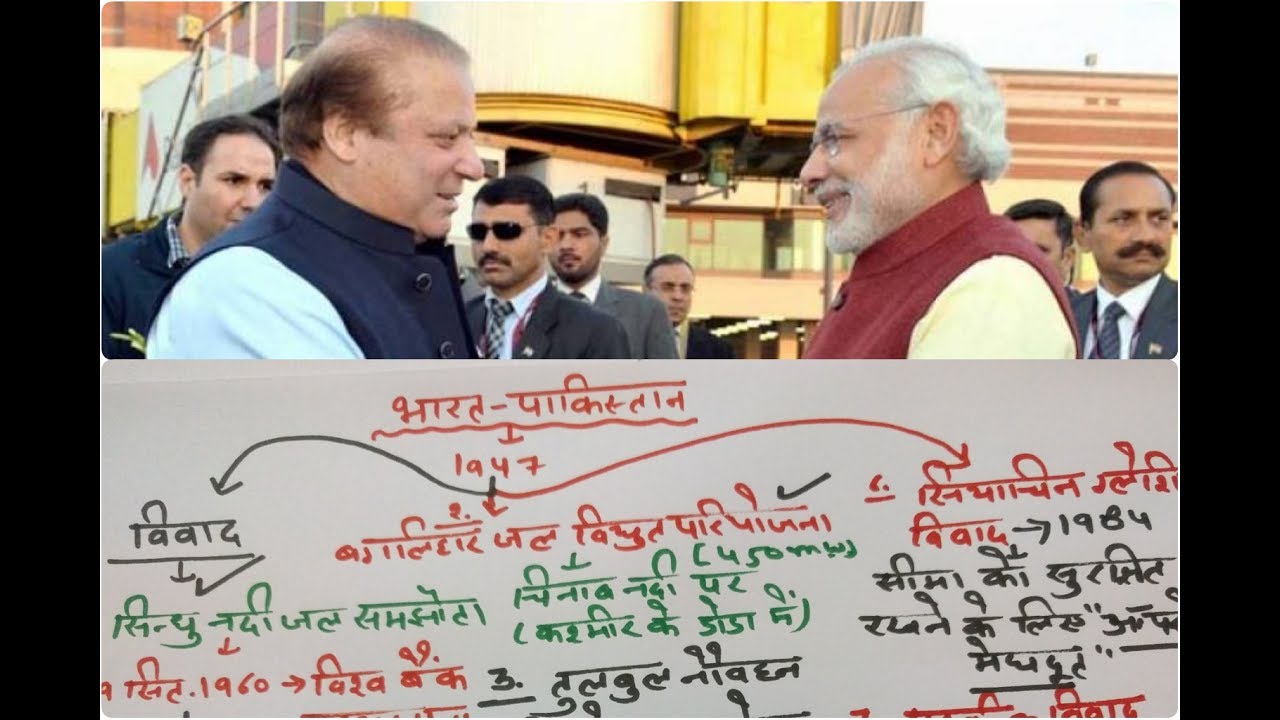 भारत-पाकिस्तान
1947
विवाद
सिन्धु नदी जल समझोता
सित.1960 → विश्व बैंक
२.
बगलिहार जल विद्युत परियोजना
(450mw)
चिनाब नदी पर
(कश्मीर के डोडा में)
3. तुलबुल नौवहन
सियाचिन ग्लैशि
विवाद → 1984
सीमा को सुरक्षित
रखने के लिए "ऑपरे
मेघदूत"
विवाद